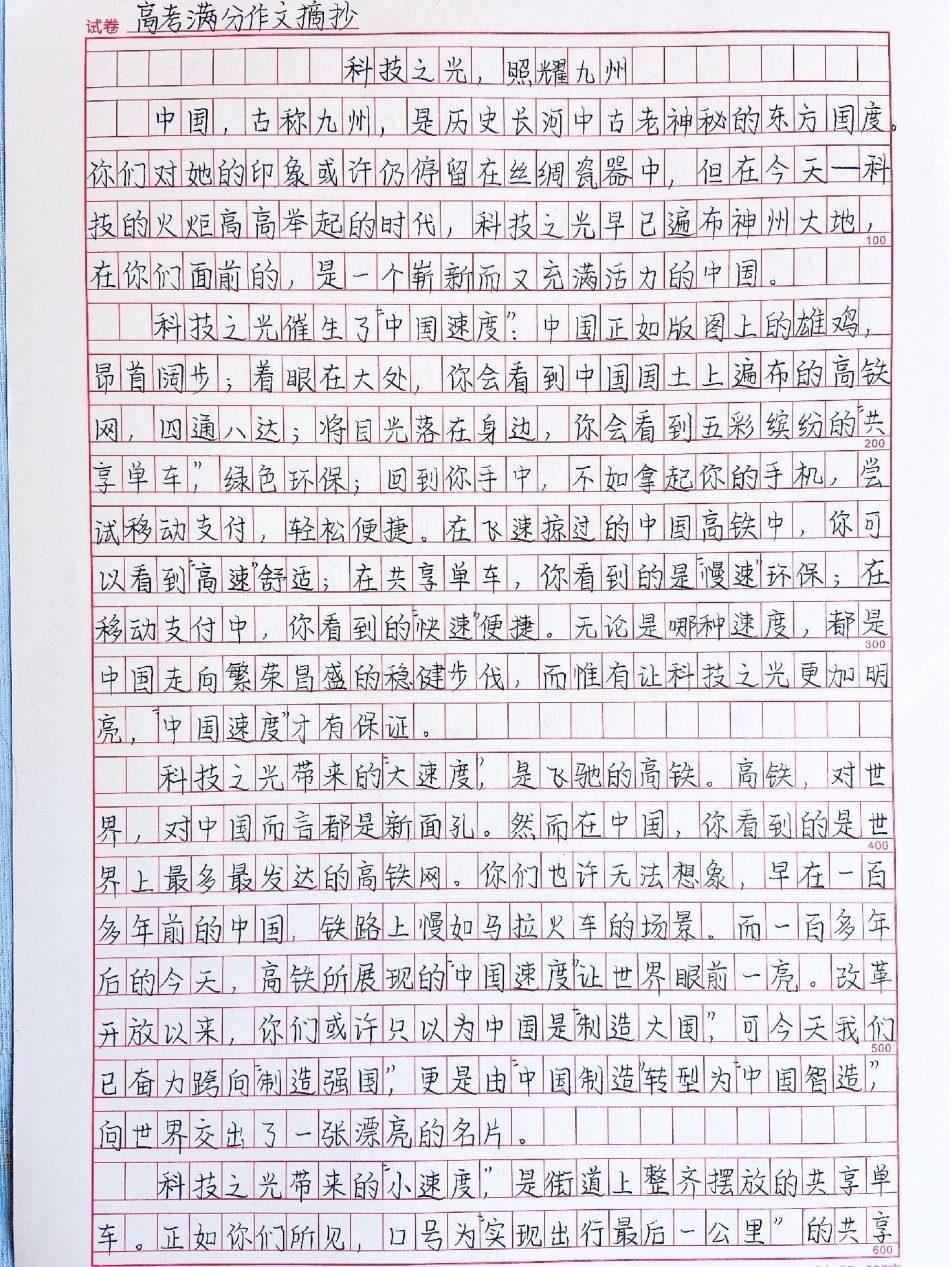 试卷 高考满分作文摘抄
科技之光，照耀九州
中国，古称九州，是历史长河中古老神秘的东方国度。
你们对她的印象或许仍停留在丝绸瓷器中，但在今天—科
技的火炬高高举起的时代，科技之光早已遍布神州大地，
100
在你们面前的，是一个崭新而又充满活力的中国。
科技之光催生了“中国速度”？中国正如版图上的雄鸡，
昂首阔步；着眼在大处，你会看到中国国土上遍布的高铁
网，四通八达；将目光落在身边，你会看到五彩缤纷的“共
200
享单车”，绿色环保；回到你手中，不如拿起你的手机，尝
试移动支付，轻松便捷。在飞速掠过的中国高铁中，你可
以看到“高速”舒适；在共享单车，你看到的是“慢速”环保；在
移动支付中，你看到的“快速”便捷。无论是哪种速度，都是
300
中国走向繁荣昌盛的稳健步伐，而惟有让科技之光更加明
亮，“中国速度”才有保证。
科技之光带来的“大速度”，是飞驰的高铁。高铁，对世
界，对中国而言都是新面孔。然而在中国，你看到的是世
400
界上最多最发达的高铁网。你们也许无法想象，早在一百
多年前的中国，铁路上慢如马拉火车的场景。而一百多年
后的今天，高铁所展现的“中国速度”让世界眼前一亮。改革
开放以来，你们或许只以为中国是“制造大国”，可今天我们
500
已奋力跨向“制造强国”，更是由“中国制造”转型为“中国智造”，
向世界交出了一张漂亮的名片。
科技之光带来的“小速度”，是街道上整齐摆放的共享单
车。正如你们所见，口号为“实现出行最后一公里”的共享
600